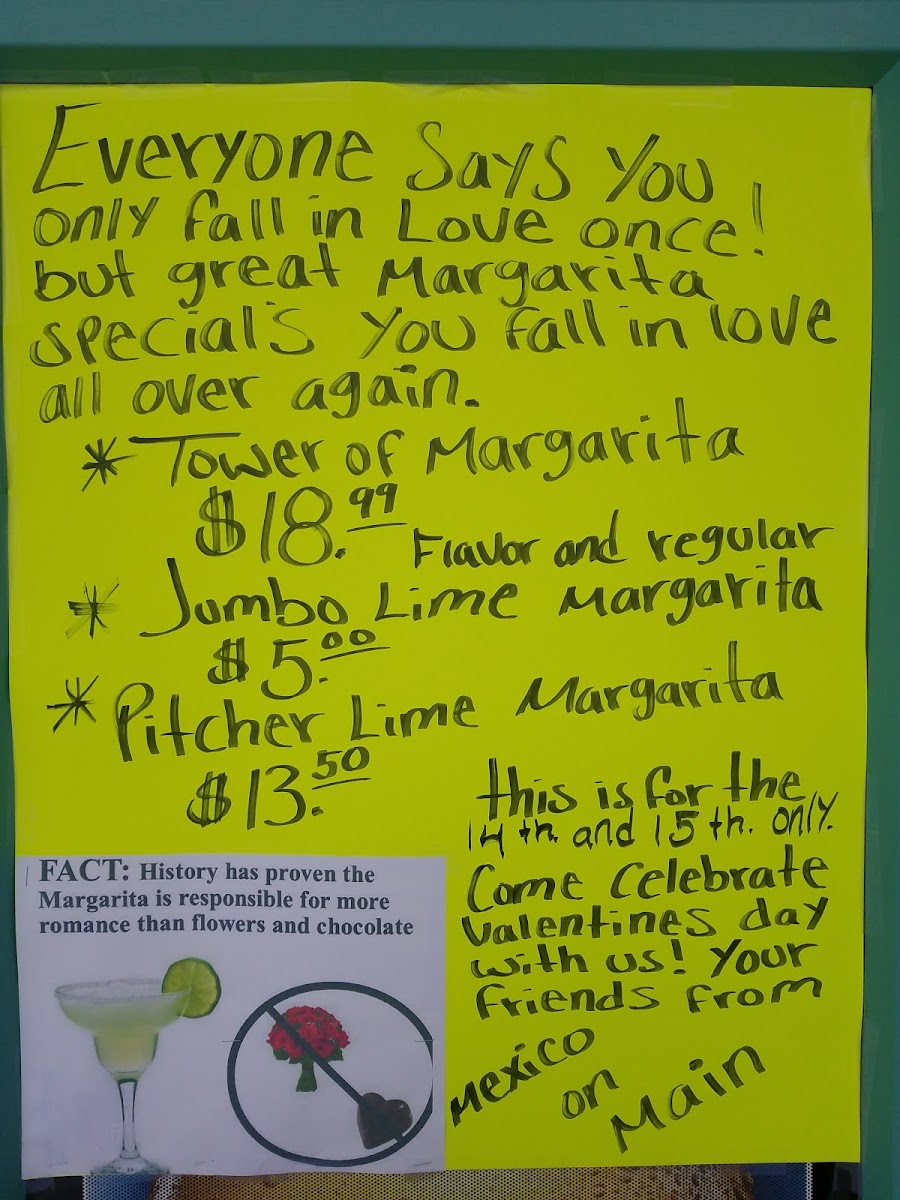 Everyone Says You
only fall in Love once!
but great Margarita
special's you fall in love
all over again.
* Tower of Margarita
$18.99 Flavor and regular
* Jumbo Lime Margarita
$5.00
* Pitcher Lime Margarita
$13.50
this is for the
14th. and 15th. only.
Come Celebrate
Valentines day
with us! Your
friends from
Mexico
on
Main
FACT: History has proven the
Margarita is responsible for more
romance than flowers and chocolate